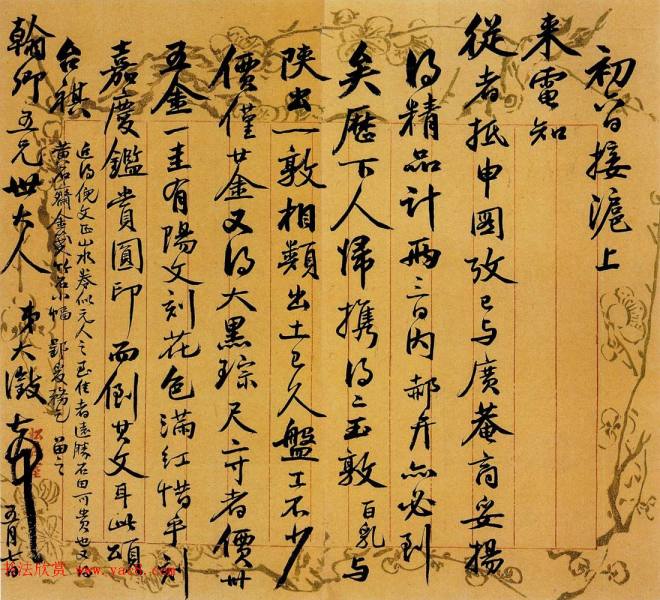 初六日接滬上
來電知
從者抵申圖攷已与廣菴商妥揚
得精品計兩三日內郝弁亦必到
矣歷下人歸攜得二玉敦百乳与
陝出一敦相類出土已久盤工不少
價僅廿金又得大黑琮尺寸者價卅
五金一圭有陽文刻花色滿紅惜乎刻
嘉慶鑑賞圓印而倒其文耳此頌
台祺
近得倪文正山水卷似元人之至佳者遠勝石田可貴也又
黃石齋金箋竹石小幅
翰卿五兄世大人 弟大澂頓首 五月七日
书法欣赏 www.yac8.com